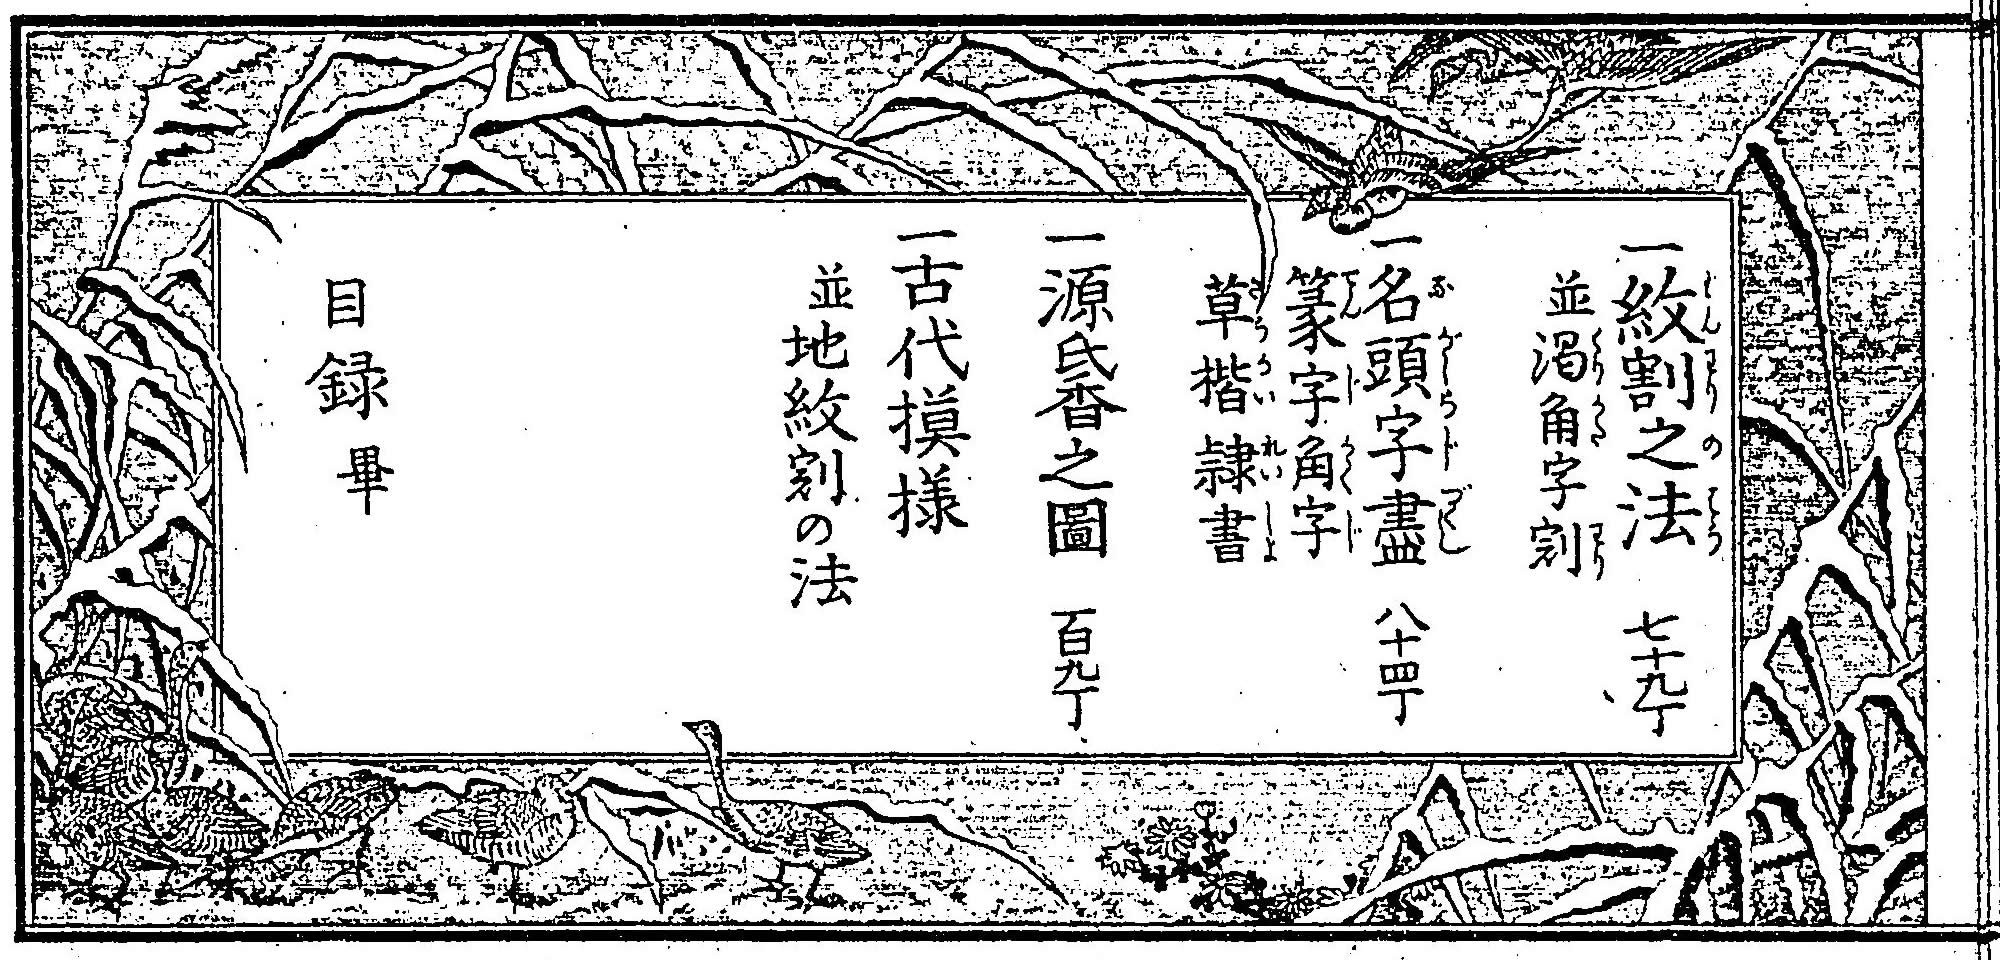 一紋割之法 七十九丁
並渇角字割
一名頭字盡 八十四丁
篆字角字
草楷隷書
一源氏香之圖 百九丁
一古代摸様
並地紋割の法
目録畢